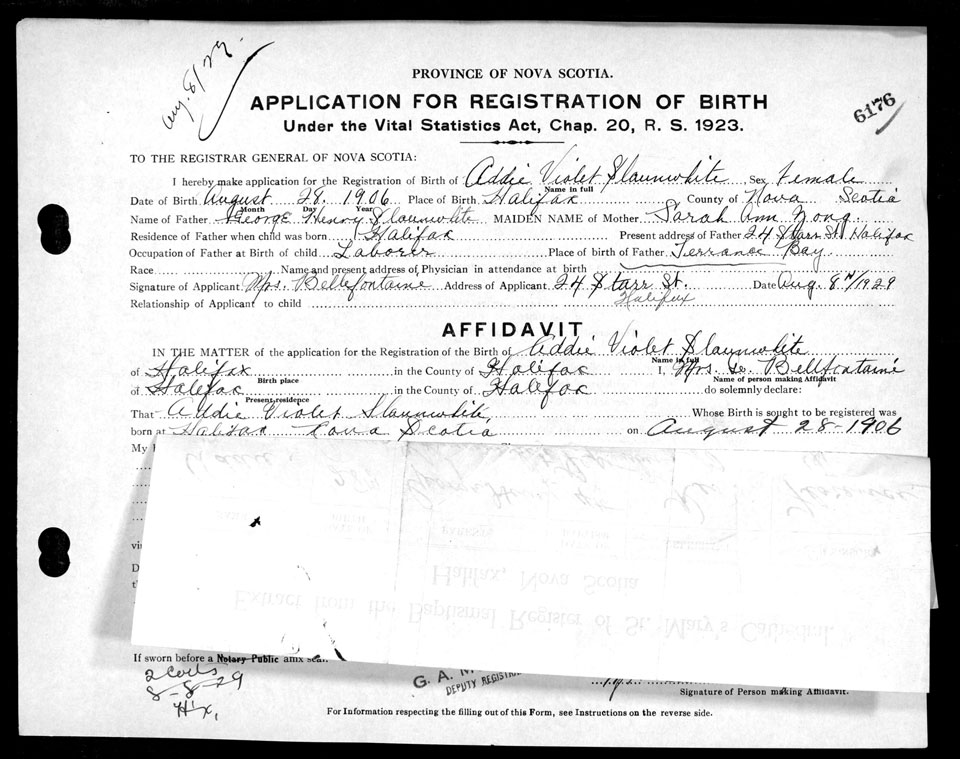 Aug. 8/29.
PROVINCE OF NOVA SCOTIA.
APPLICATION FOR REGISTRATION OF BIRTH
6176
Under the Vital Statistics Act, Chap. 20, R. S. 1923.
TO THE REGISTRAR GENERAL OF NOVA SCOTIA:
I hereby make application for the Registration of Birth of Addie Violet Slaunwhite Sex Female
Name in full
Date of Birth August 28. 1906 Place of Birth Halifax County of Nova Scotia
Month Day Year
Name of Father George Henry Slaunwhite MAIDEN NAME of Mother Sarah Ann Zong
Residence of Father when child was born Halifax Present address of Father 24 Starr St. Halifax
Occupation of Father at Birth of child Laborer Place of birth of Father Terrance Bay
Race Name and present address of Physician in attendance at birth
Signature of Applicant Mrs. Bellefontaine Address of Applicant 24 Starr St. Date Aug. 8th/1929
Halifax
Relationship of Applicant to child
AFFIDAVIT
IN THE MATTER of the application for the Registration of the Birth of Addie Violet Slaunwhite
Name in full
of Halifax in the County of Halifax I, Mrs. Bellfontaine
Birth place Name of person making Affidavit
of Halifax in the County of Halifax do solemnly declare:
Present residence
That Addie Violet Slaunwhite Whose Birth is sought to be registered was
born at Halifax Nova Scotia on August 28-1906
My
Halifax, Nova Scotia
Extract from the Baptismal Register of St. Mary's Cathedral.
If sworn before a Notary Public amx seal.
2 Certs
8-8-29
H'x,
G. A. M
DEPUTY REGISTRA
Signature of Person making Affidavit.
For Information respecting the filling out of this Form, see Instructions on the reverse side.